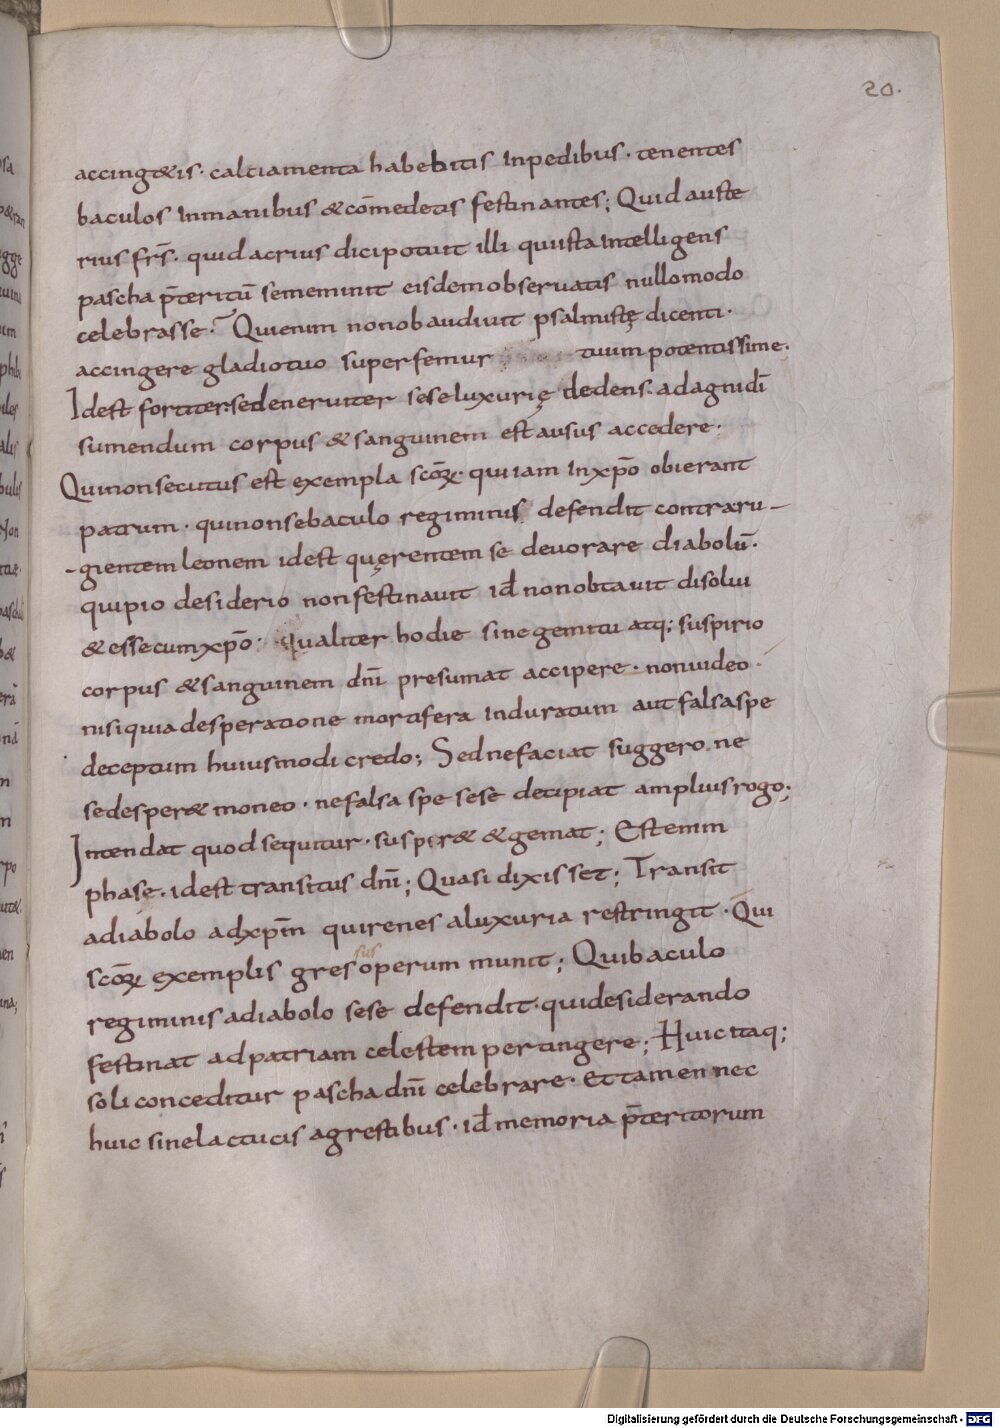 20.
accing&is. caltiamenta habebitis Inpedibus. tenentes
baculos Inmanibus &cōmedetis festinantes; Quid auste
rius frs̄. quid acrius dici potuit illi qui ista Intelligens
pascha p̄teritū sememinit eisdem observatis nullomodo
celebrasse. Quienim non obaudivit psalmistę dicenti.
accingere gladio tuo super femur tuum potentissime.
Idest fortiter. sed enerviter sese luxurię dedens. ad agni dī
sumendum corpus & sanguinem est ausus accedere.
Qui non secutus est exempla scōꝝ. qui iam In xp̄o obierant
patrum. qui non se baculo regiminis defendit contra ru-
-gientem leonem idest quęrentem se devorare diabolū.
qui pio desiderio non festinavit id̄ non obtavit disolvi
& esse cum xp̄o. qualiter hodie sine gemitu atq; suspirio
corpus & sanguinem dnī presumat accipere. non video.
nisi quia desperatione mortifera induratum aut falsa spe
deceptum huiusmodi credo; Sed ne faciat suggero. ne
se desper& moneo. ne falsa spe sese decipiat amplius rogo;
Intendat quod sequitur. suspir& & gemat; Est enim
phase. idest transitus dnī; Quasi dixisset; Transit
a diabolo ad xp̄m qui renes a luxuria restringit. Qui
scōꝝ exemplis gressus operum munit; Qui baculo
regiminis a diabolo sese defendit. qui desiderando
festinat ad patriam celestem pertingere; Huic itaq;
soli conceditur pascha dnī celebrare. et tamen nec
huic sine lactucis agrestibus. id̄ memoria p̄teritorum
Digitalisierung gefördert durch die Deutsche Forschungsgemeinschaft - DFG